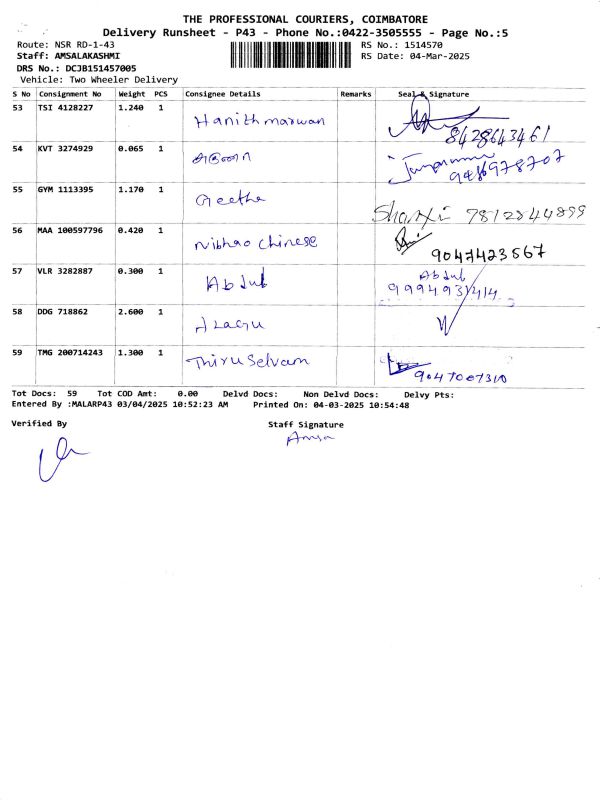 THE PROFESSIONAL COURIERS, COIMBATORE
Delivery Runsheet - P43 - Phone No.:0422-3505555 - Page No.:5
Route: NSR RD-1-43 RS No.: 1514570
Staff: AMSALAKASHMI RS Date: 04-Mar-2025
DRS No.: DCJB151457005
Vehicle: Two Wheeler Delivery
S No Consignment No Weight PCS Consignee Details Remarks Seal & Signature
53 TSI 4128227 1.240 1 Hanith marwan 8428643461
54 KVT 3274929 0.065 1
55 GYM 1113395 1.170 1 Geetha 7812844899
56 MAA 100597796 0.420 1 Nibhao chinese 9047423567
57 VLR 3282887 0.300 1 Abdul Abdul
9994931414
58 DDG 718862 2.600 1
59 TMG 200714243 1.300 1 Thiru Selvam 9047007310
Tot Docs: 59 Tot COD Amt: 0.00 Delvd Docs: Non Delvd Docs: Delvy Pts:
Entered By :MALARP43 03/04/2025 10:52:23 AM Printed On: 04-03-2025 10:54:48
Verified By Staff Signature
Amsa